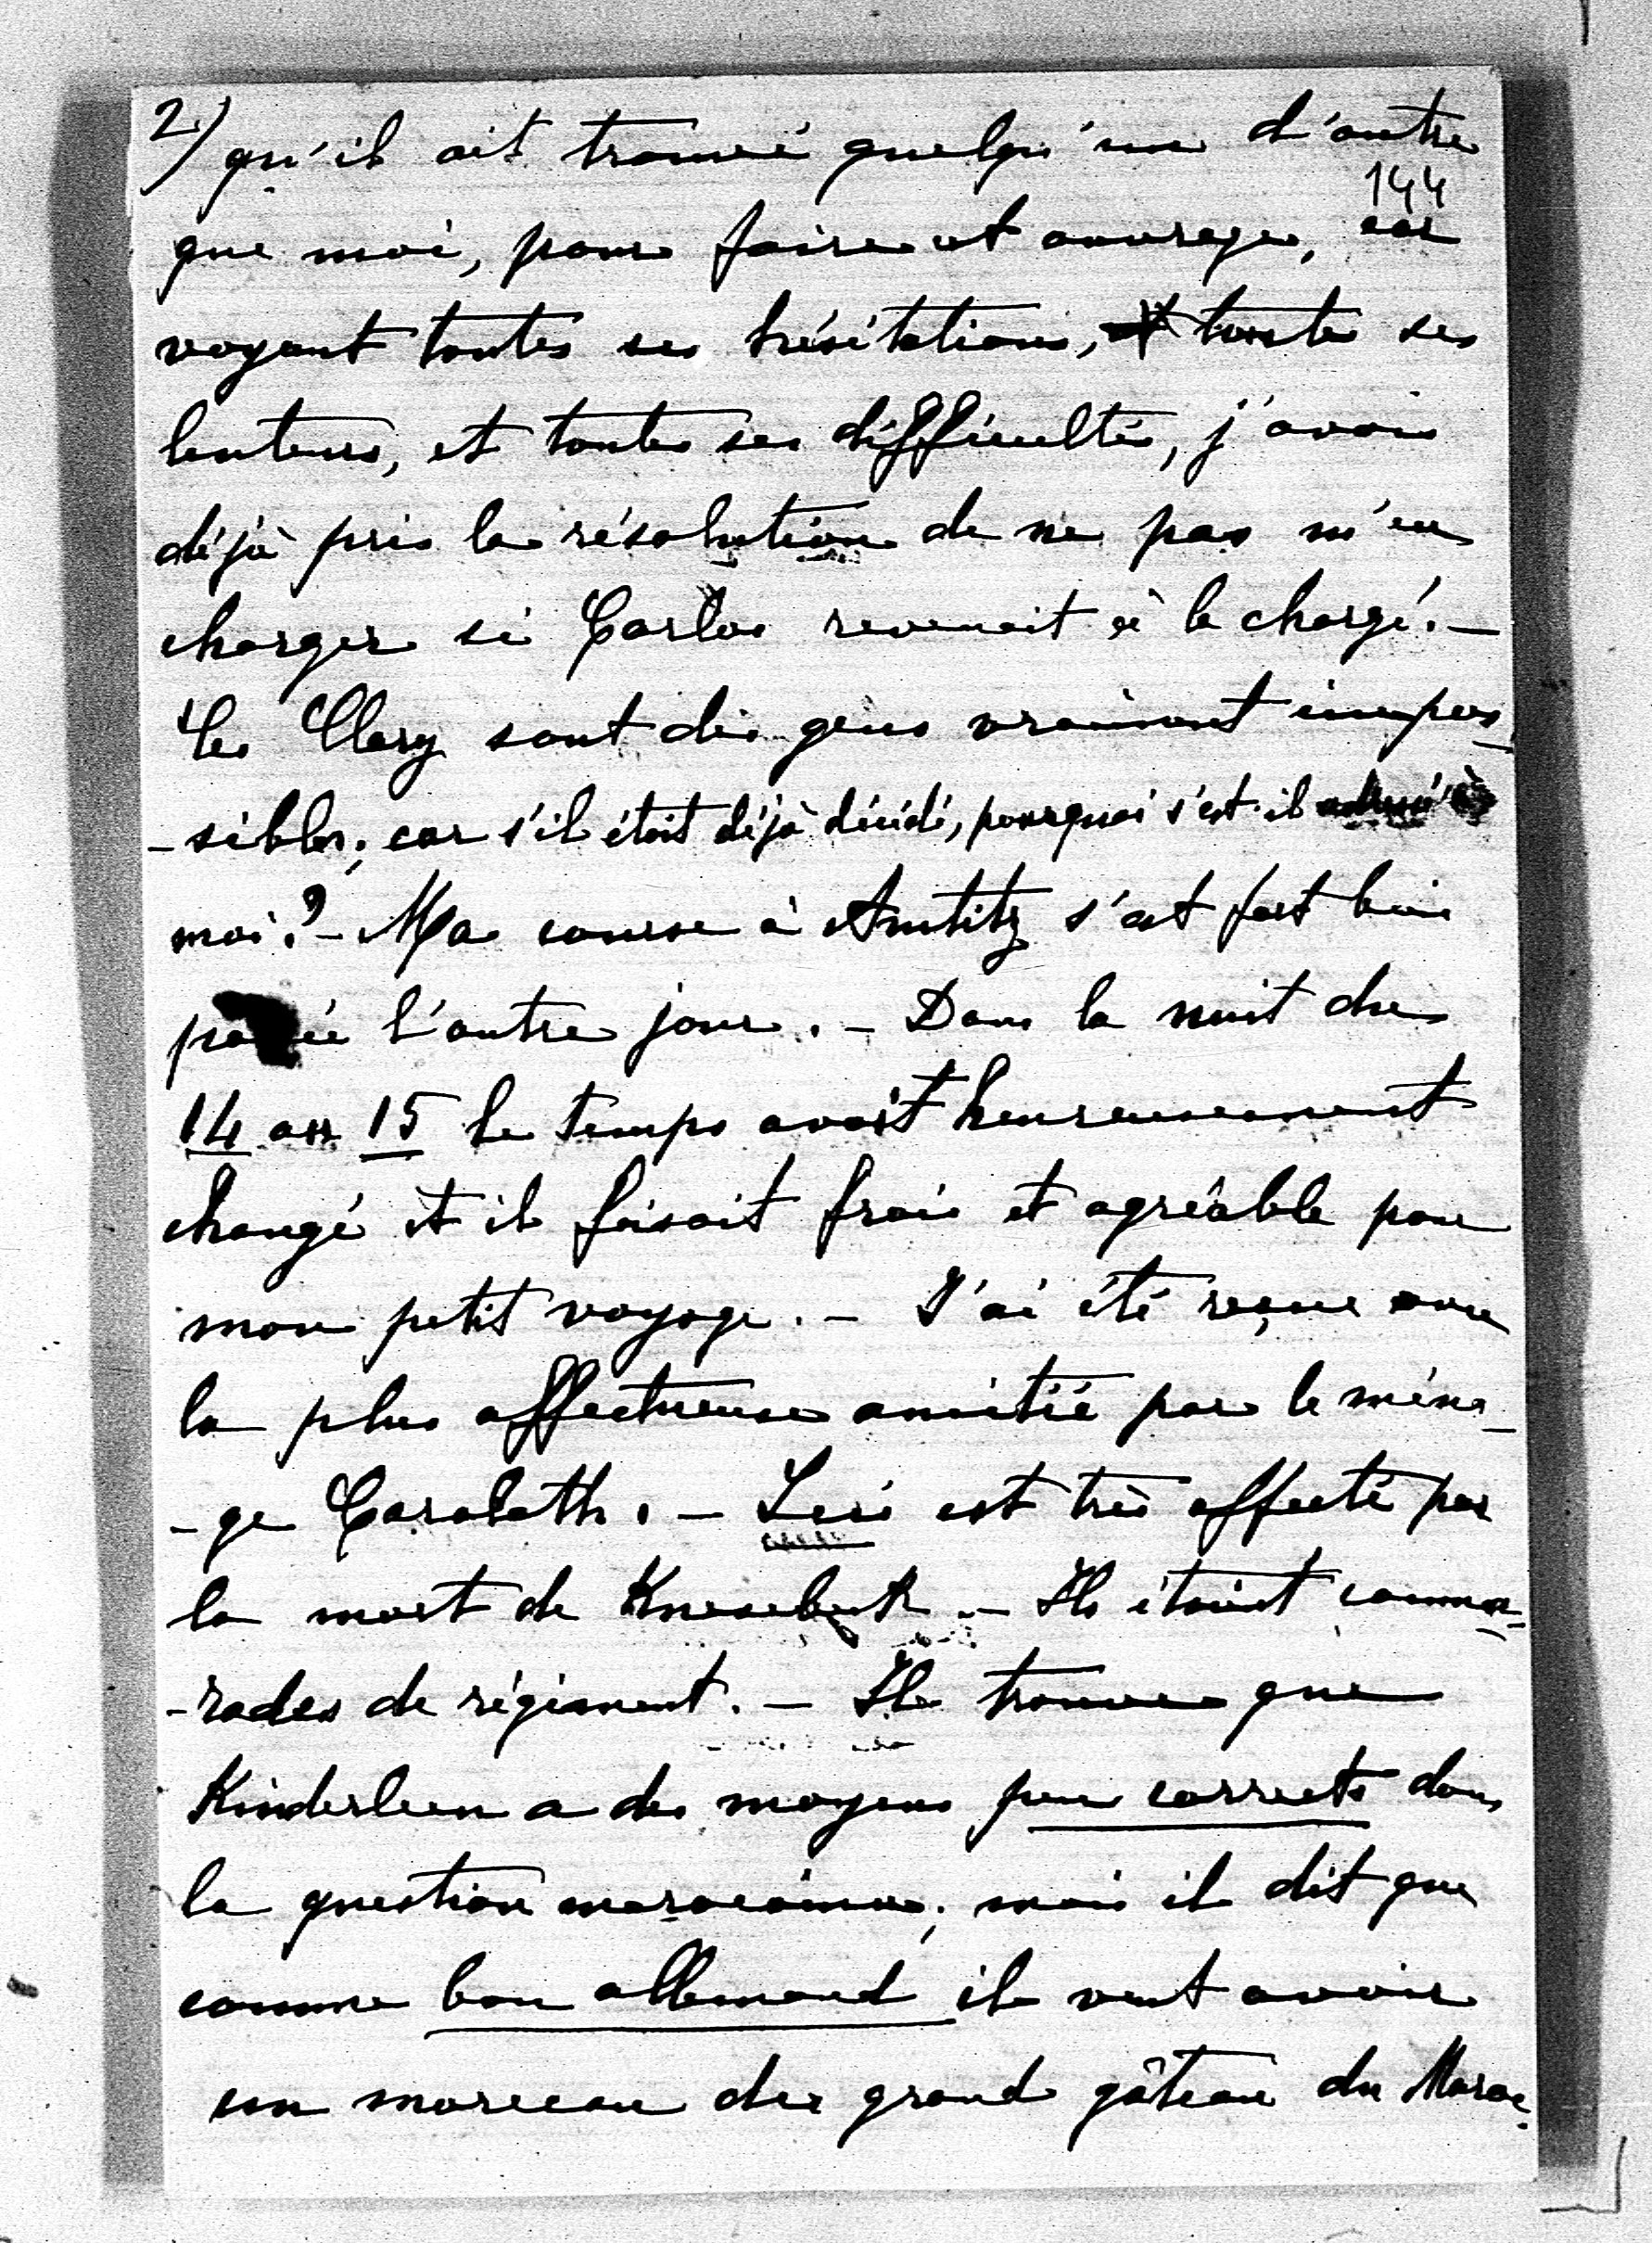 2) qu'il ait trouvé quelqu'un d'autre
144
que moi, pour faire cet ouvrage, car
voyant toutes ses hésitations, toutes ses
lenteurs, et toutes ses difficultés, j'avais
déjà pris la résolution de ne pas m'en
charger si Carlos revenait à la charge. —
Les Clary sont des gens vraiment impos-
-sibles; car s'il était déjà décidé, pourquoi s'est-il adressé à
moi? – Ma course à Amtitz s'est fort bien
passée l'autre jour. – Dans la nuit du
14 au 15 le temps avait heureusement
changé et il faisait frais et agréable pour
mon petit voyage. – J'ai été reçue avec
la plus affectueuse amitié par le ména-
-ge Carolath. – Leur est très affecté par
la mort de Knesebeck – Ils étaient cama-
-rades de régiment. – Il trouve que
Kinderleen a des moyens peu corrects dans
la question marocaine; mais il dit que
comme bon allemand il veut avoir
un morceau du grand gâteau du Maroc.